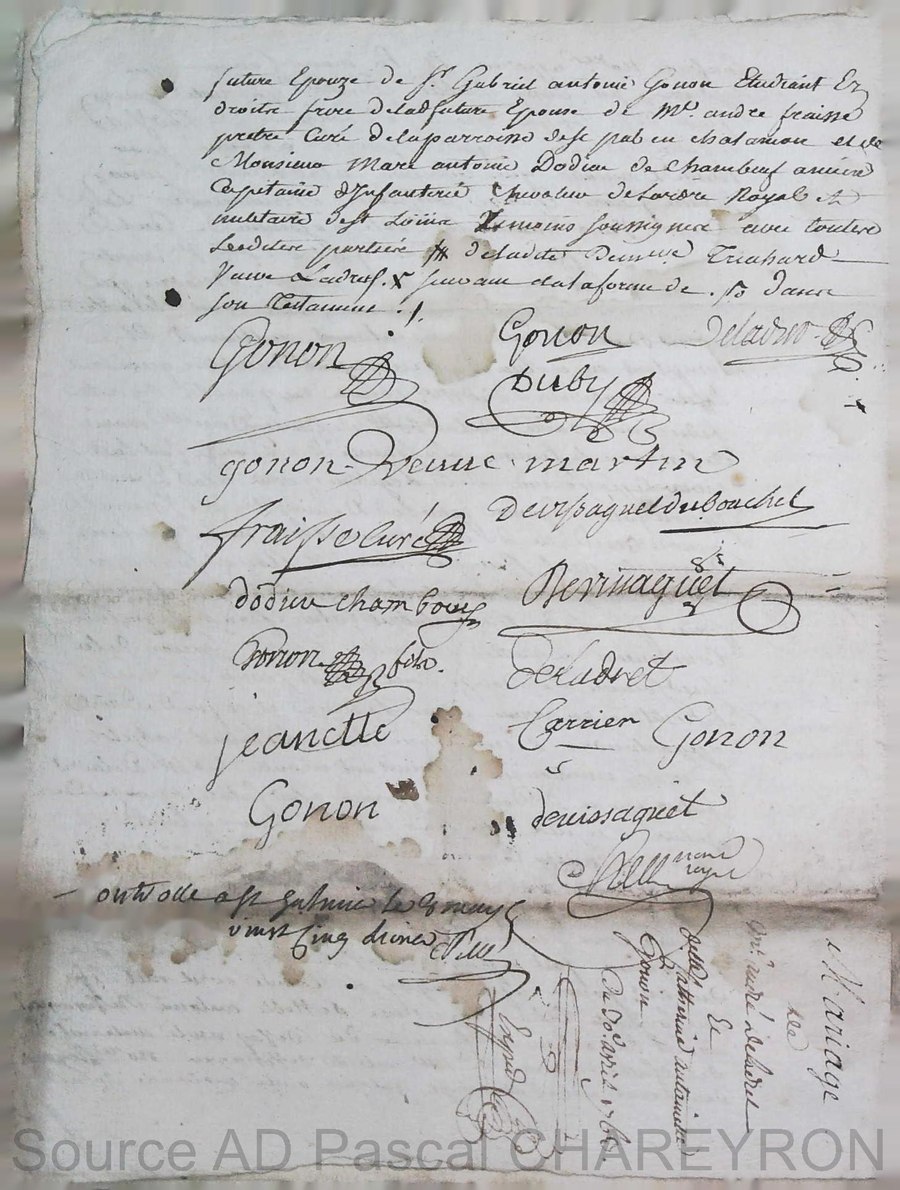 future Epouze de Sr. Gabriel antoine Gonon Etudiant En
droits frere de lad future Epouse de Mr. andre fraisse
pretre Curé de la parroisse de st pal en chalamon et de
Monsieur Marc antoine Dodieu de Chambeuf ancien
Capitaine d'Infanterie Chevalier de Lordre Royal et
militaire de st Loüis temoins soussignes avec toutes
Lesdites parties de ladite Demlle Truchard
Veuve Ladret suivant et a la forme de dans
son Testament
Gonon Gonon Deladret
Duby
gonon Veuve martin
fraisse Curé Devissaguet du Bouchet
dodieu chambeuf
Gonon fils. deladret
jeanette Carrier Gonon
Gonon devissaguet
Controlle a st galmier le 8 may
vint Cinq
Mariage
de
Mr. andré deladret
Et
delle Catherine antoinette
Gonon
Du 30 avril
Expedié
Source AD Pascal CHAREYRON